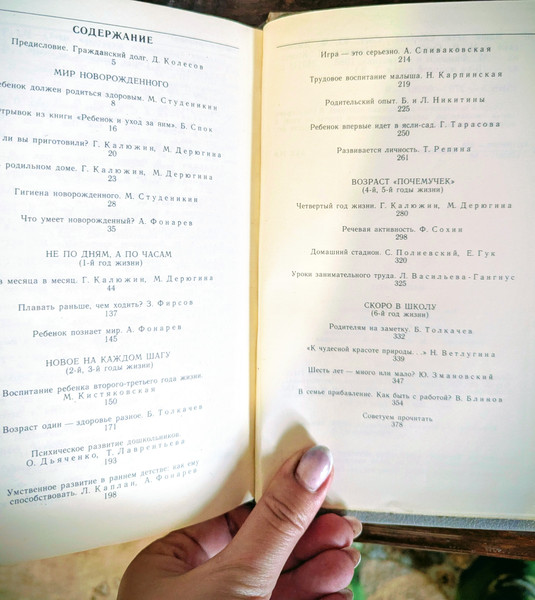 СОДЕРЖАНИЕ
Предисловие. Гражданский долг. Д. Колесов
5
МИР НОВОРОЖДЕННОГО
ебенок должен родиться здоровым. М. Студеникин
8
трывок из книги «Ребенок и уход за ним». Б. Спок
16
ли вы приготовили? Г. Калюжин, М. Дерюгина
20
родильном доме. Г. Калюжин, М. Дерюгина
23
Гигиена новорожденного. М. Студеникин
28
Что умеет новорожденный? А. Фонарев
35
НЕ ПО ДНЯМ, А ПО ЧАСАМ
(1-й год жизни)
месяца в месяц. Г. Калюжин, М. Дерюгина
44
Плавать раньше, чем ходить? З. Фирсов
137
Ребенок познает мир. А. Фонарев
145
НОВОЕ НА КАЖДОМ ШАГУ
(2-й, 3-й годы жизни)
Воспитание ребенка второго-третьего года жизни.
М. Кистяковская
150
Возраст один — здоровье разное. Б. Толкачев
171
Психическое развитие дошкольников.
О. Дьяченко, Т. Лаврентьева
193
Умственное развитие в раннем детстве: как ему
способствовать. Л. Каплан, А. Фонарев
198
Игра — это серьезно. А. Спиваковская
214
Трудовое воспитание малыша. Н. Карпинская
219
Родительский опыт. Б. и Л. Никитины
225
Ребенок впервые идет в ясли-сад. Г. Тарасова
250
Развивается личность. Т. Репина
261
ВОЗРАСТ «ПОЧЕМУЧЕК»
(4-й, 5-й годы жизни)
Четвертый год жизни. Г. Калюжин, М. Дерюгина
280
Речевая активность. Ф. Сохин
298
Домашний стадион. С. Полиевский, Е. Гук
320
Уроки занимательного труда. Л. Васильева-Гангнус
325
СКОРО В ШКОЛУ
(6-й год жизни)
Родителям на заметку. Б. Толкачев
332
«К чудесной красоте природы...» Н. Ветлугина
339
Шесть лет — много или мало? Ю. Змановский
347
В семье прибавление. Как быть с работой? В. Блинов
354
Советуем прочитать
378